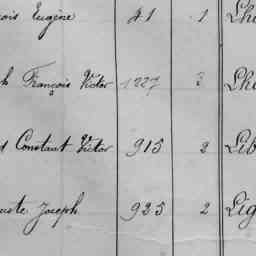 ois Eugène 41 1 Lh
h François Victor 1227 3 Lh
d Constant Victor 915 2 Lib
uste Joseph 925 2 Lig